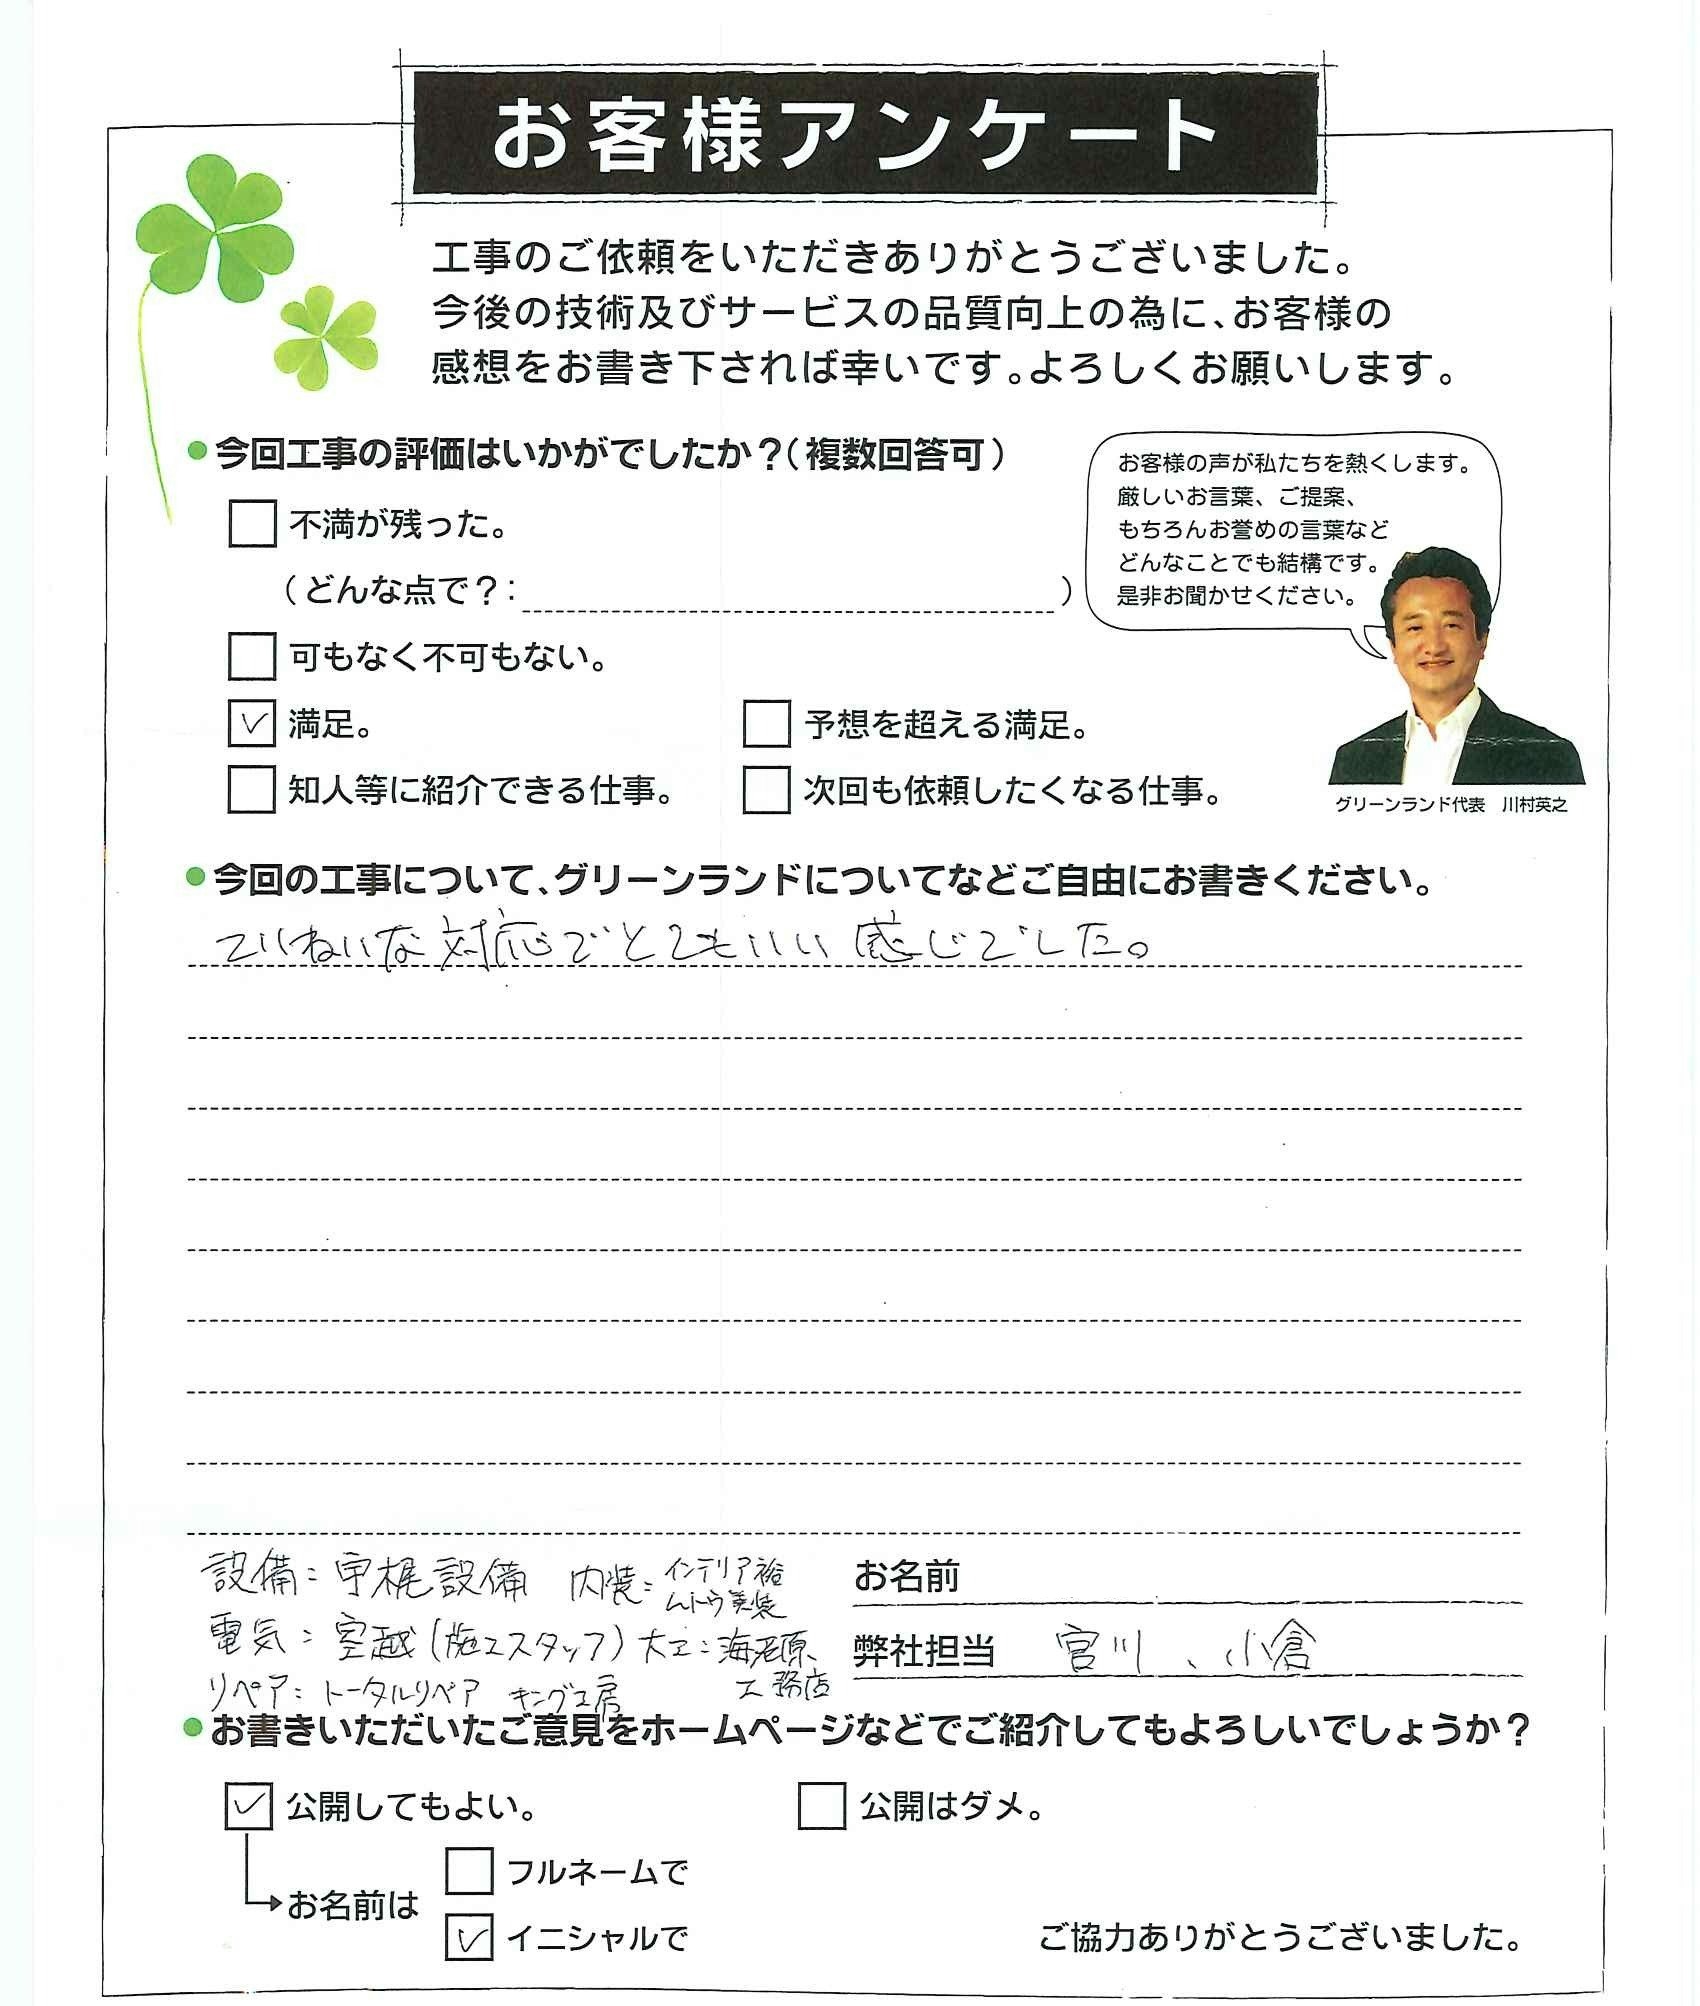 お客様アンケート
工事のご依頼をいただきありがとうございました。
今後の技術及びサービスの品質向上の為に、お客様の
感想をお書き下されば幸いです。よろしくお願いします。
●今回工事の評価はいかがでしたか？（複数回答可）
不満が残った。
（どんな点で？：　　　）
可もなく不可もない。
満足。
予想を超える満足。
知人等に紹介できる仕事。
次回も依頼したくなる仕事。
お客様の声が私たちを熱くします。
厳しいお言葉、ご提案、
もちろんお誉めの言葉など
どんなことでも結構です。
是非お聞かせください。
グリーンランド代表　川村英之
●今回の工事について、グリーンランドについてなどご自由にお書きください。
ていねいな対応でとてもいい感じでした。
設備：宇梶設備　内装：インテリア裕
ムトウ美装
電気：室越（施工スタッフ）大工：海老原
工務店
リペア：トータルリペア　キング工房
お名前
弊社担当　宮川、小倉
●お書きいただいたご意見をホームページなどでご紹介してもよろしいでしょうか？
公開してもよい。
公開はダメ。
お名前は
フルネームで
イニシャルで
ご協力ありがとうございました。